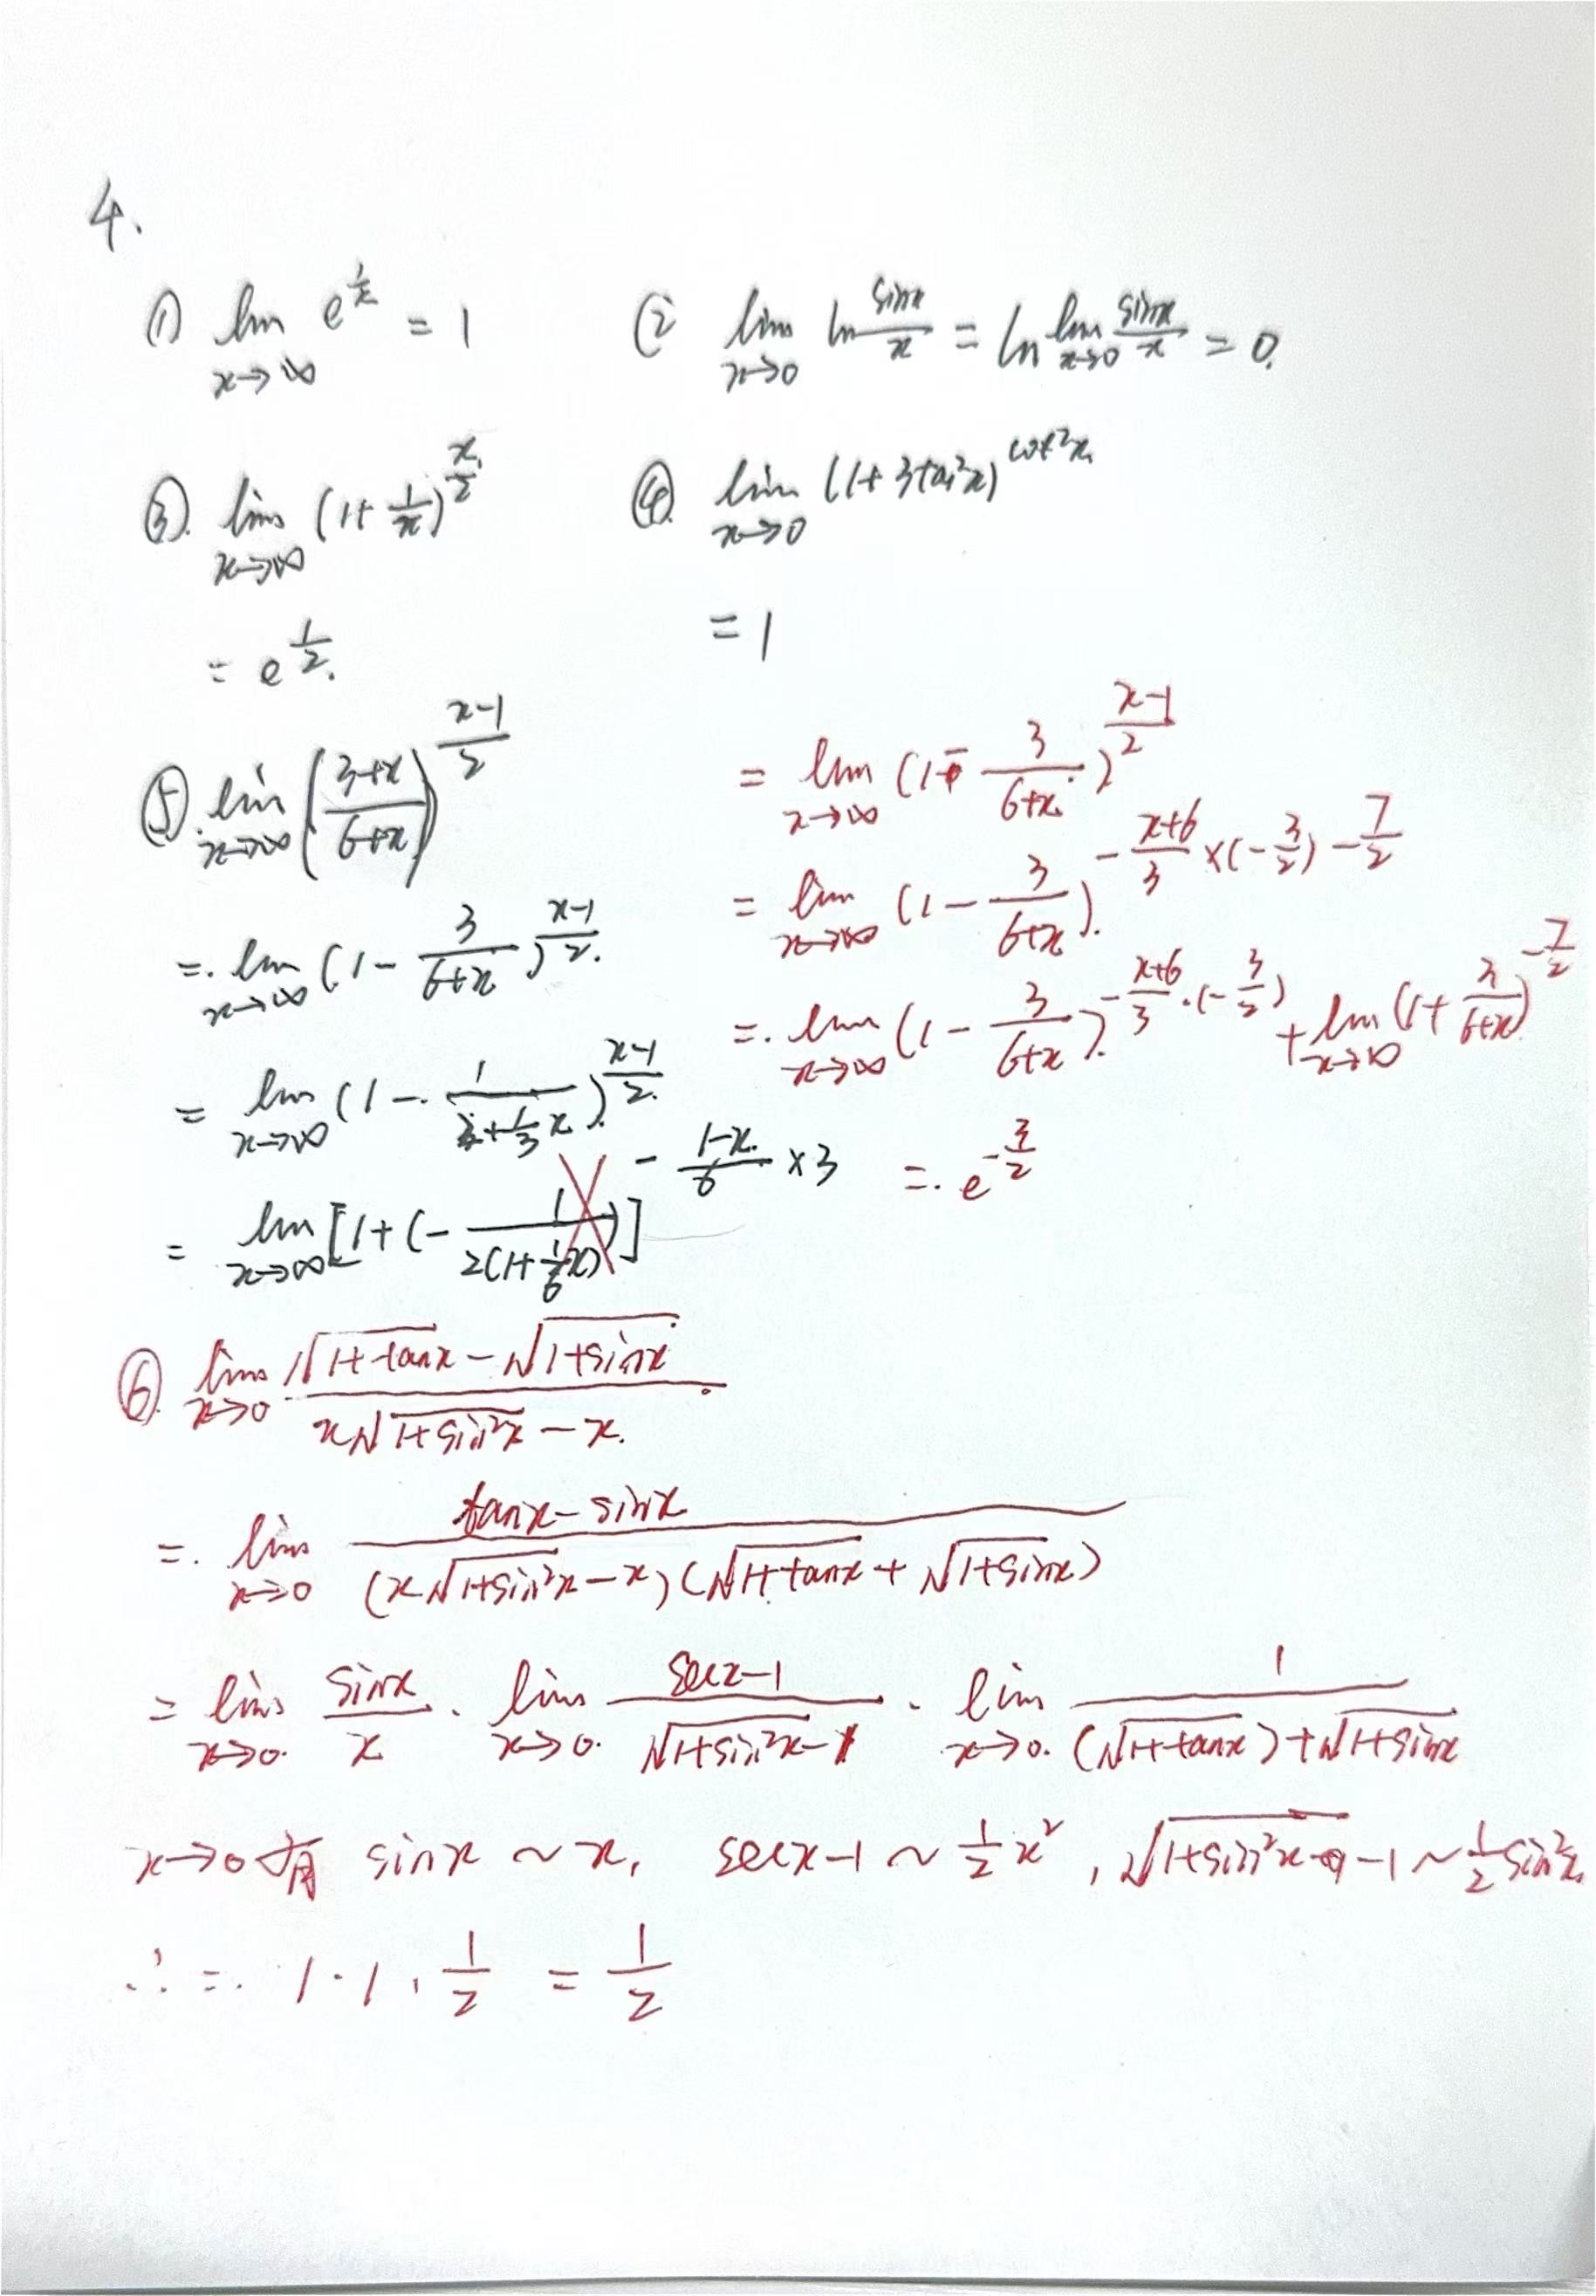 4.
① lim_{x→∞} e^{1/x} = 1
② lim_{x→0} ln (sinx/x) = ln lim_{x→0} (sinx/x) = 0.
③. lim_{x→∞} (1+ 1/x)^{x/2}
= e^{1/2}.
④. lim_{x→0} (1+3tan²x)^{cot²x}
= 1
⑤. lim_{x→∞} ((3+x)/(6+x))^{(x-1)/2}
=. lim_{x→∞} (1 - 3/(6+x))^{(x-1)/2}.
= lim_{x→∞} (1 - 1/(2+(1/3)x))^{(x-1)/2}.
= lim_{x→∞} [1+(- 1/(2(1+(1/6)x)))]^{- (1-x)/6 ×3}
= lim_{x→∞} (1 - 3/(6+x))^{(x-1)/2}
= lim_{x→∞} (1 - 3/(6+x))^{- (x+6)/3 ×(-3/2) - 7/2}
=. lim_{x→∞} (1 - 3/(6+x))^{- (x+6)/3 ·(-3/2)} + lim_{x→∞} (1+ 3/(6+x))^{-7/2}
=. e^{-3/2}
⑥. lim_{x→0} (√(1+tanx) - √(1+sinx))/(x√(1+sin²x) - x).
=. lim_{x→0} (tanx - sinx)/((x√(1+sin²x) - x)(√(1+tanx) + √(1+sinx)))
= lim_{x→0} sinx/x · lim_{x→0} (secx-1)/(√(1+sin²x) -1) · lim_{x→0} 1/((√(1+tanx))+√(1+sinx))
x→0 有 sinx ~ x, secx-1 ~ (1/2)x², √(1+sin²x) -1 ~ (1/2)sin²x.
∴ =. 1·1·1/2 = 1/2